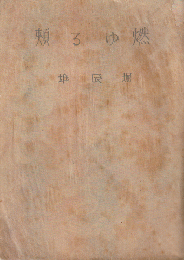 燃ゆる頬
堀辰雄